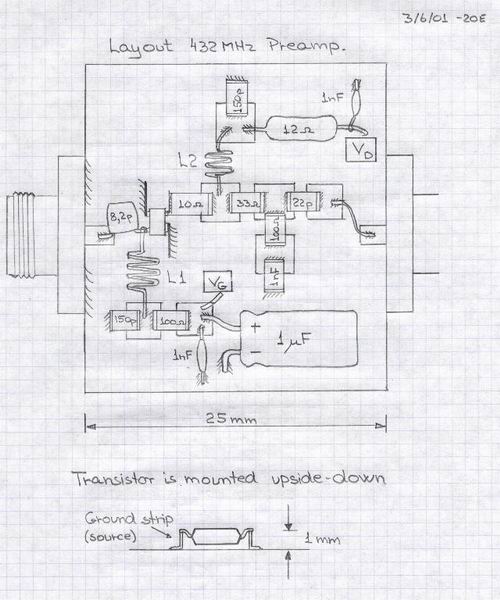 3/6/01 -20E
Layout 432 MHz Preamp.
150p
1nF
12Ω
VD
L2
8,2p
10Ω
33Ω
22p
100Ω
1nF
L1
VG
150p
100Ω
+
1µF
−
1nF
25 mm
Transistor is mounted upside-down
Ground strip
(source)
1 mm